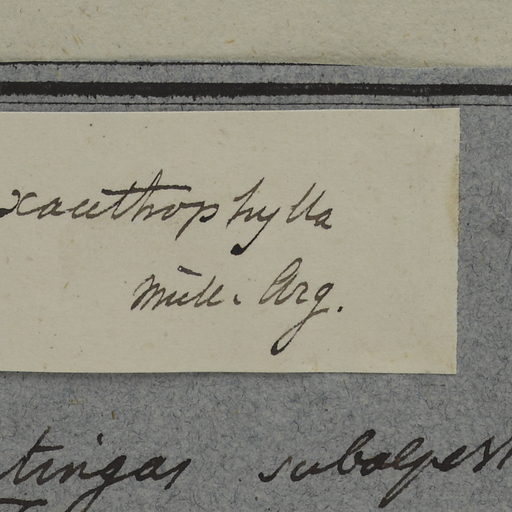 xanthophylla
Müll. Arg.
tingas subalpest